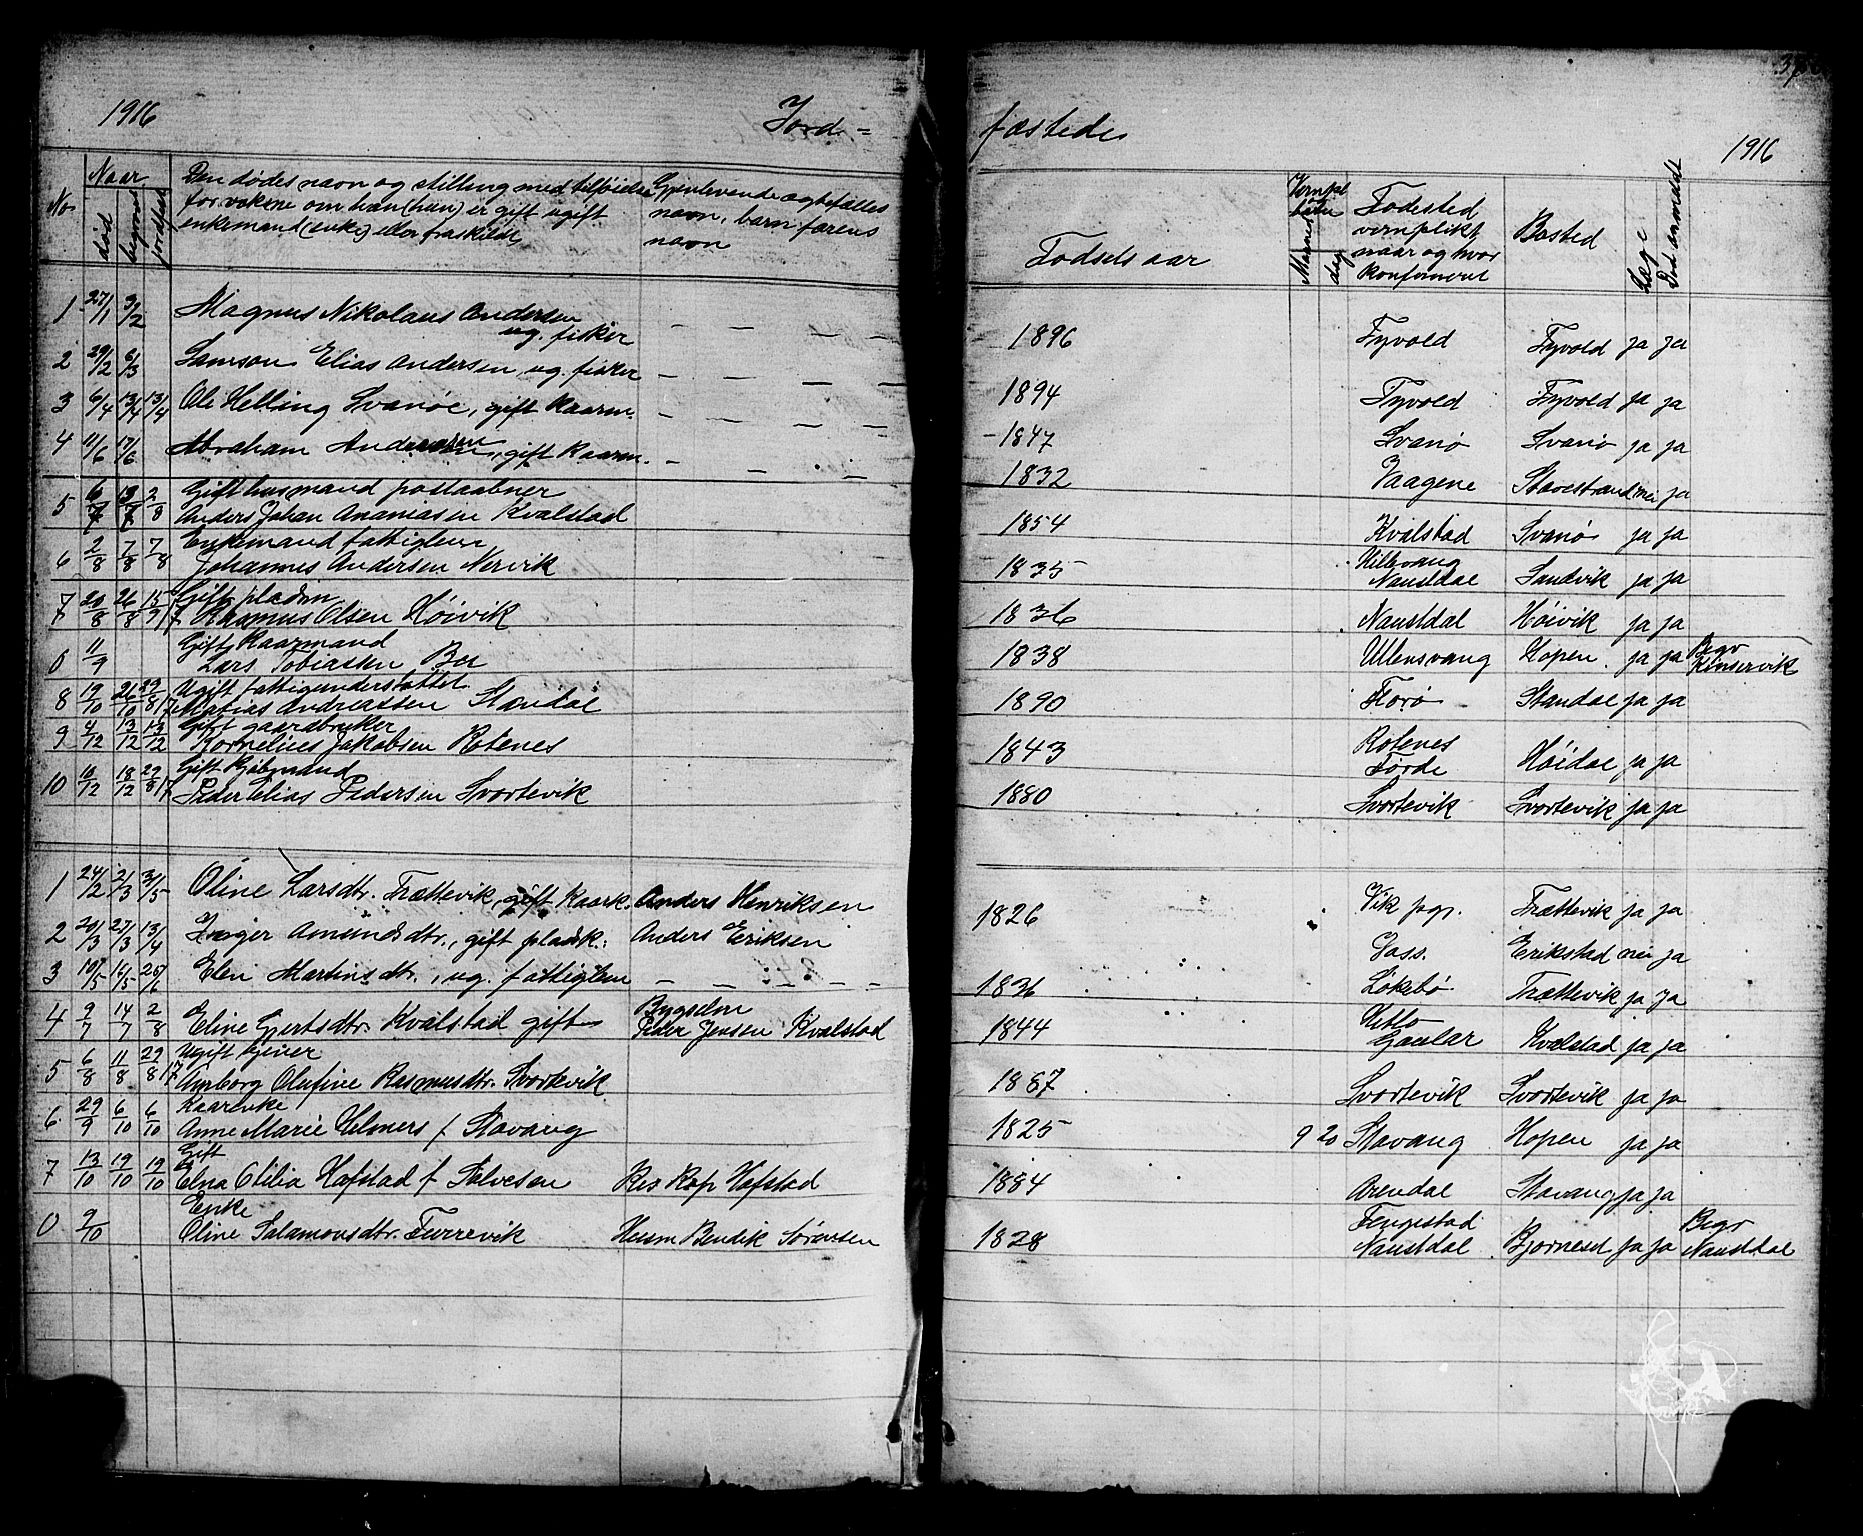 1916 Jord = fæstede 1916
No Naar Den dødes navn og stilling med tilføielse Gjenlevende ægtefælles
død begravet jordfæst for voksne om han (hun) er gift ugift navn, barn farens
enkemand (enke) eller fraskildt navn
Fødselsaar Maaned dag Fødested Bosted Læge Død anmeldt
vernplikt
naar og hvor
konfirmeret
1 27/1 3/2 Magnus Nikolaus Andersen
ug. fisker - - - - 1896 Fyvold Fyvold ja ja
2 29/2 6/3 Samson Elias Andersen, ug. fisker - - - - 1894 Fyvold Fyvold ja ja
3 6/4 13/4 13/4 Ole Helling Svanøe, gift kaarm. - - - - 1847 Svanø Svanø ja ja
4 11/6 17/6 Abraham Andersen, gift kaarm. - - - 1832 Vaagene Stavestrand nei ja
5 6/7 13/7 2/8 Gift husmand postaabner
Anders Johan Ananiasen Kvalstad 1854 Kvalstad Svanø ja ja
6 2/8 7/8 7/8 Enkemand fattiglem
Johannes Andersen Nervik 1835 Naustdal Sandvik ja ja
7 20/8 26/8 15/9 17 Gift pladsm
Rasmus Olsen Høivik 1836 Naustdal Høivik ja ja
0 11/9 Gift Kaarmand
Lars Tobiassen Bor 1838 Ullensvang Hopen ja ja Begr Kinservik
8 19/10 26/10 29/8 17 Ugift fattigunderstøttet
Matias Andreassen Standal 1890 Florø Standal ja ja
9 4/12 13/12 13/12 Gift gaardbruker
Kornelius Jakobsen Rotenes 1843 Rotenes
Førde Høidal ja ja
10 10/12 18/12 29/8 17 Gift Kjøbmand
Peder Elias Pedersen Svortevik 1880 Svortevik Svortevik ja ja
1 24/2 2/3 31/5 Oline Larsdtr. Trættevik, gift kaark. Anders Henriksen 1826 Vik pgr. Trættevik ja ja
2 20/3 27/3 13/4 Inger Amundsdtr., gift pladsk: Anders Eriksen Erikstad nei ja
3 10/5 16/5 25/6 Elen Martinsdtr., ug. fattiglem - - - - - 1836 Løkebø Trættevik ja ja
4 9/7 14/7 2/8 Eline Gjertsdtr. Kvalstad gift Bygselm
Peder Jensen Kvalstad 1844 Gaular Kvalstad ja ja
5 6/8 11/8 29/8 17 Ugift tjener
Amborg Olufine Rasmusdtr. Svortevik 1887 Svortevik Svortevik ja ja
6 29/9 6/10 6/10 Kaarenke
Anne Marie Helmers f Stavang 1825 9 20 Stavang Hopen ja ja
7 13/10 19/10 19/10 Gift
Elna Otilia Hofstad f Salvesen Res Kap Hofstad 1884 Arendal Stavang ja ja
0 9/10 Enke
Oline Salamonsdtr. Furrevik Husm Bendik Sørensen 1828 Fengestad
Naustdal Bjørneset ja ja Begr
Naustdal